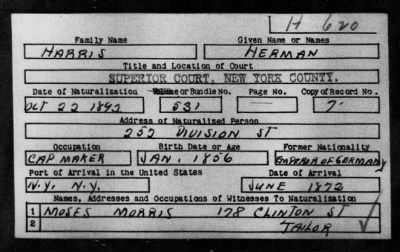 H 620
Family Name Given Name or Names
HARRIS HERMAN
Title and Location of Court
SUPERIOR COURT, NEW YORK COUNTY.
Date of Naturalization Volume or Bundle No. Page No. Copy of Record No.
OCT 22 1892 531 7
Address of Naturalized Person
252 DIVISION ST
Occupation Birth Date or Age Former Nationality
CAP MAKER JAN. 1856 EMPEROR OF GERMANY
Port of Arrival in the United States Date of Arrival
N.Y. N.Y. JUNE 1872
Names, Addresses and Occupations of Witnesses To Naturalization
1 MOSES MORRIS 178 CLINTON ST
2 TAILOR